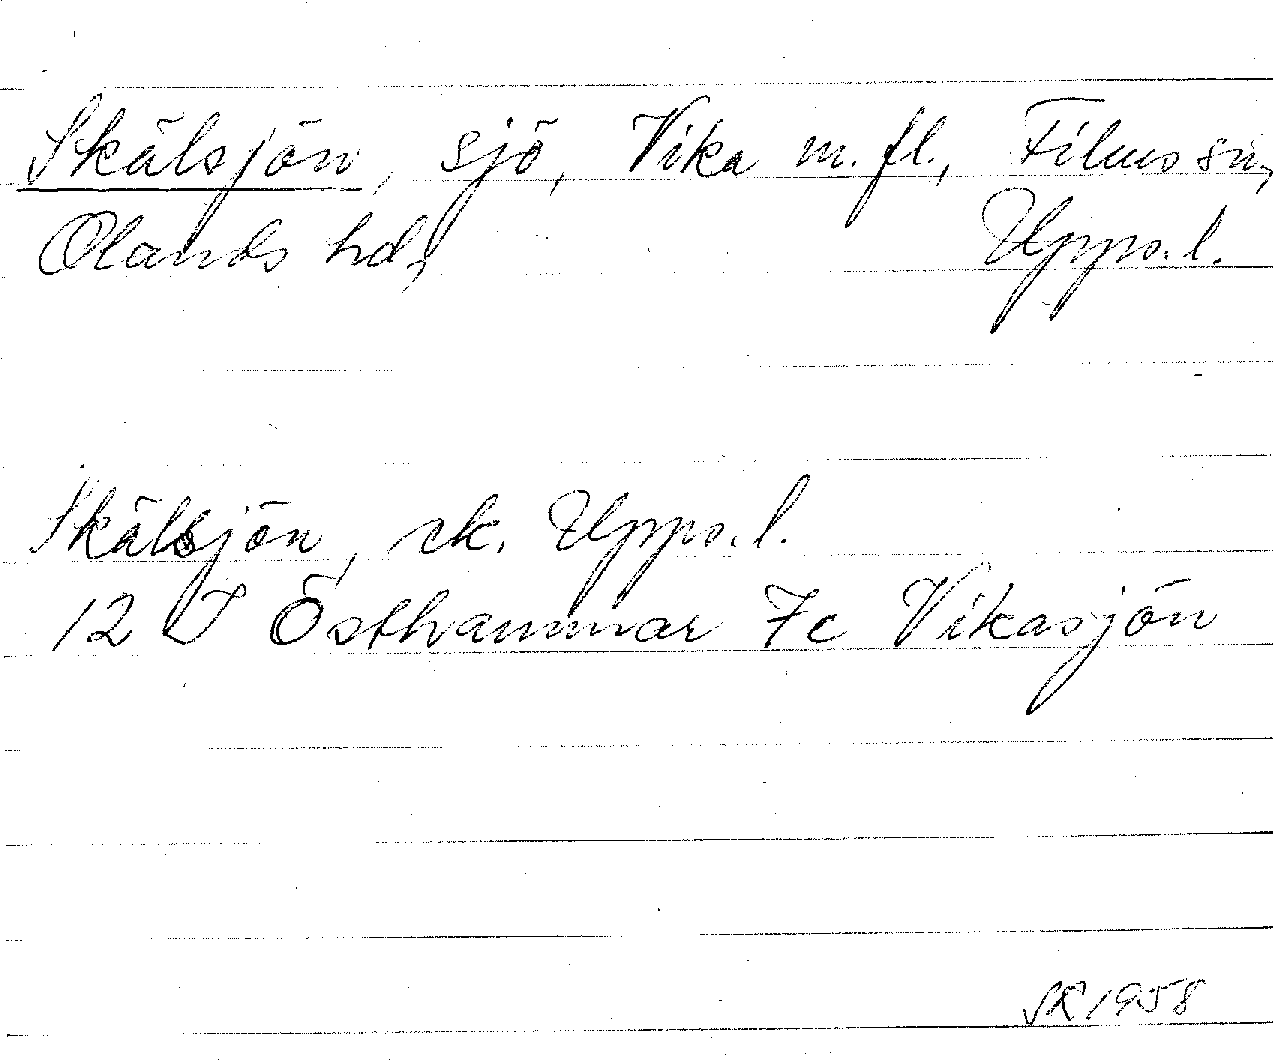 Skälsjön, sjö, Vika m. fl., Films sn,
Olands hd, Upps. l.
Skälsjön, ek. Upps. l.
12 I Östhammar 7c Vikasjön
1958